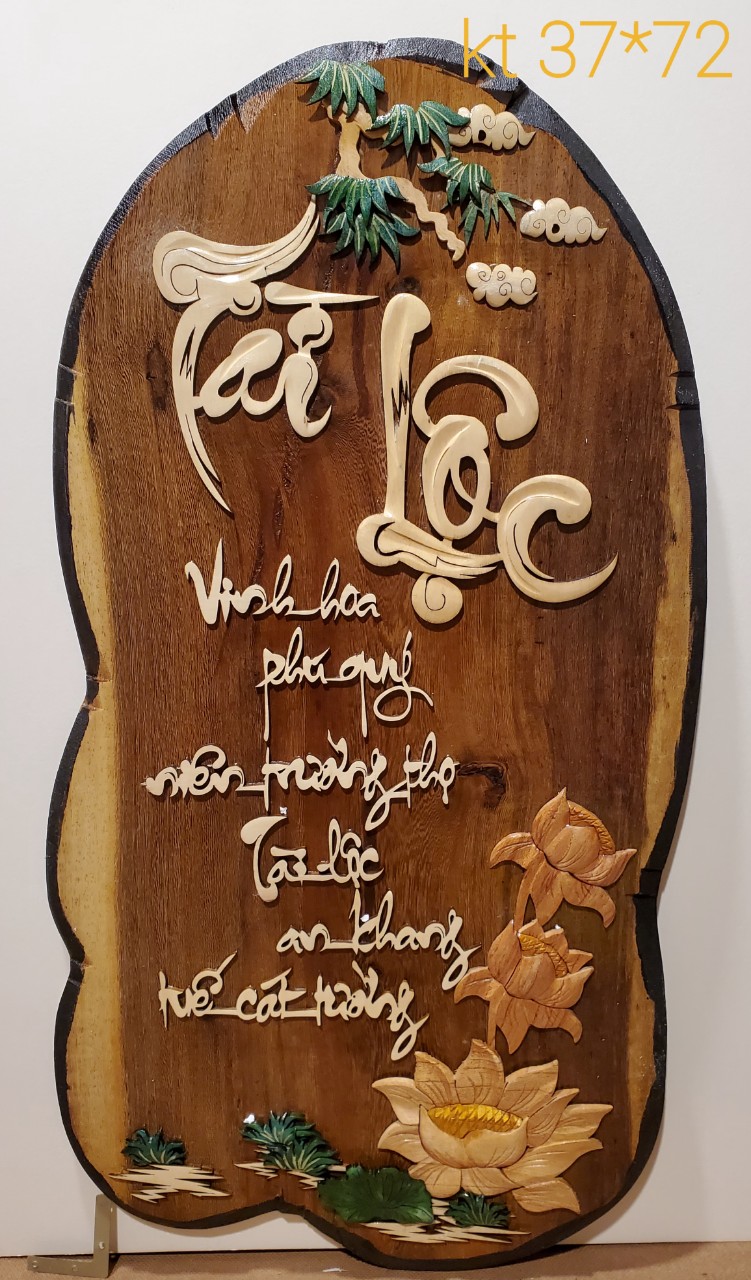 kt 37*72
Tài
Lộc
Vinh hoa
phú quý
niên trường thọ
Tài lộc
an khang
tuế cát tường